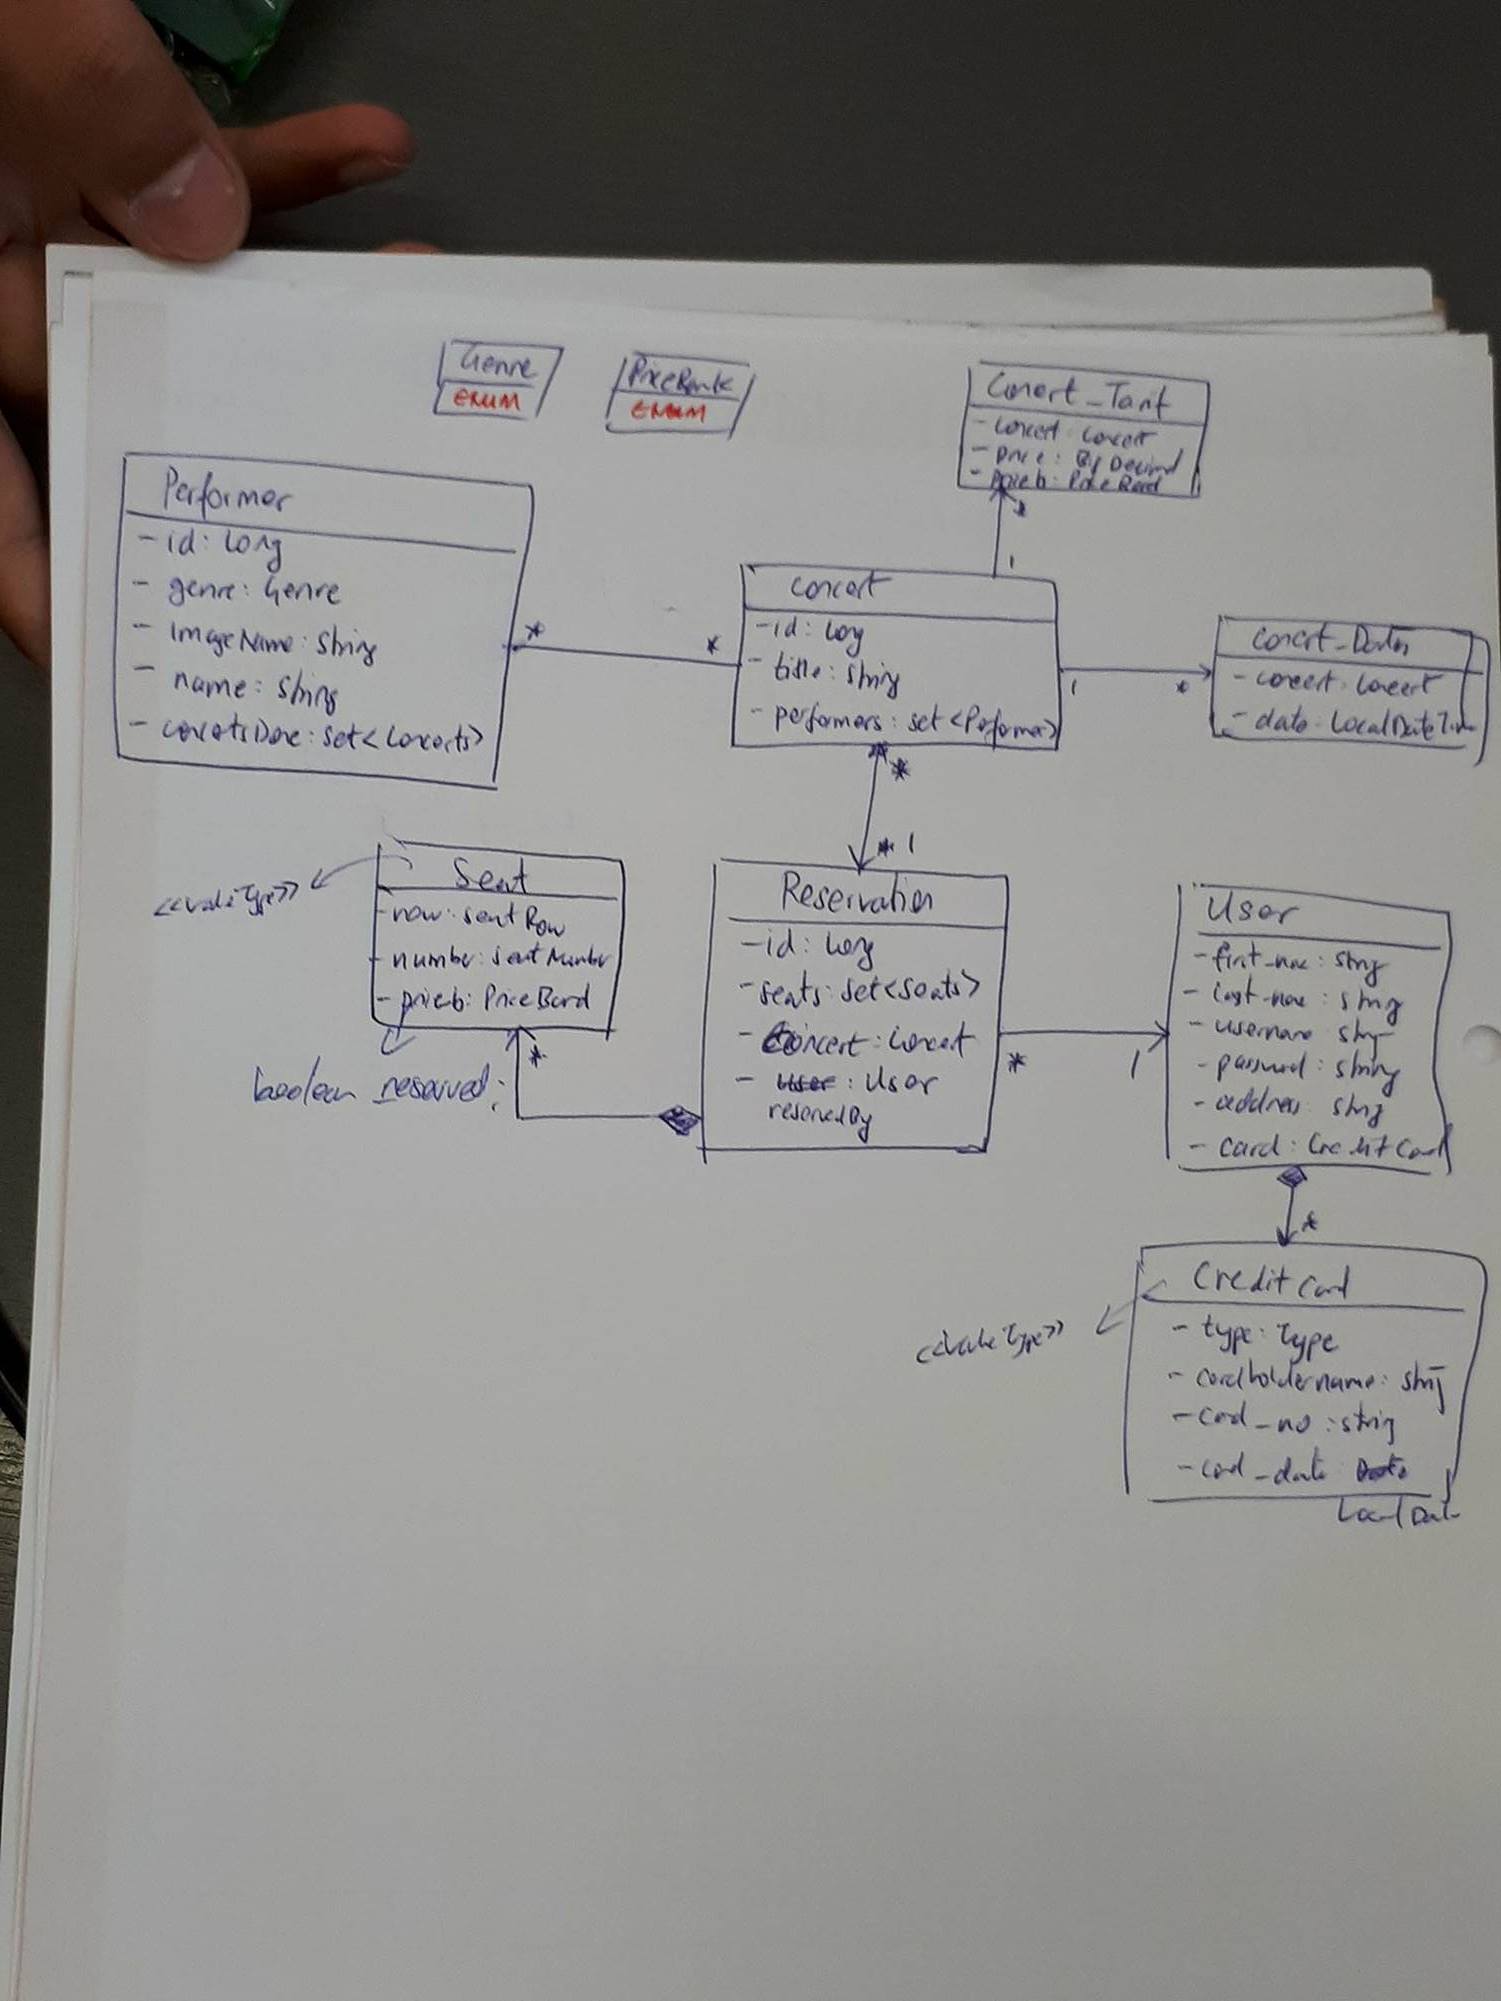 Genre
ENUM
PriceBank
ENUM
Concert_Tarif
- concert: Concert
- price: BigDecimal
- priceb: PriceBand
Performer
- id: Long
- genre: Genre
- ImageName: String
- name: String
- concertsDone: Set<Concerts>
*
*
1
Concert
- id: Long
- title: String
- performers: set<Performer>
1
*
Concert_Dates
- concert: Concert
- date: LocalDateTime
*
* 1
<<valueType>>
Seat
- row: seatRow
- number: seatNumber
- priceb: PriceBand
boolean reserved;
*
Reservation
- id: Long
- seats: set<Seats>
- Concert: Concert
- user: User
reservedBy
*
1
User
- first_name: String
- last_name: String
- username String
- password: String
- address: String
- card: CreditCard
*
<<valueType>>
Credit Card
- type: Type
- cardholdername: String
- card_no: string
- card_date Date
LocalDate